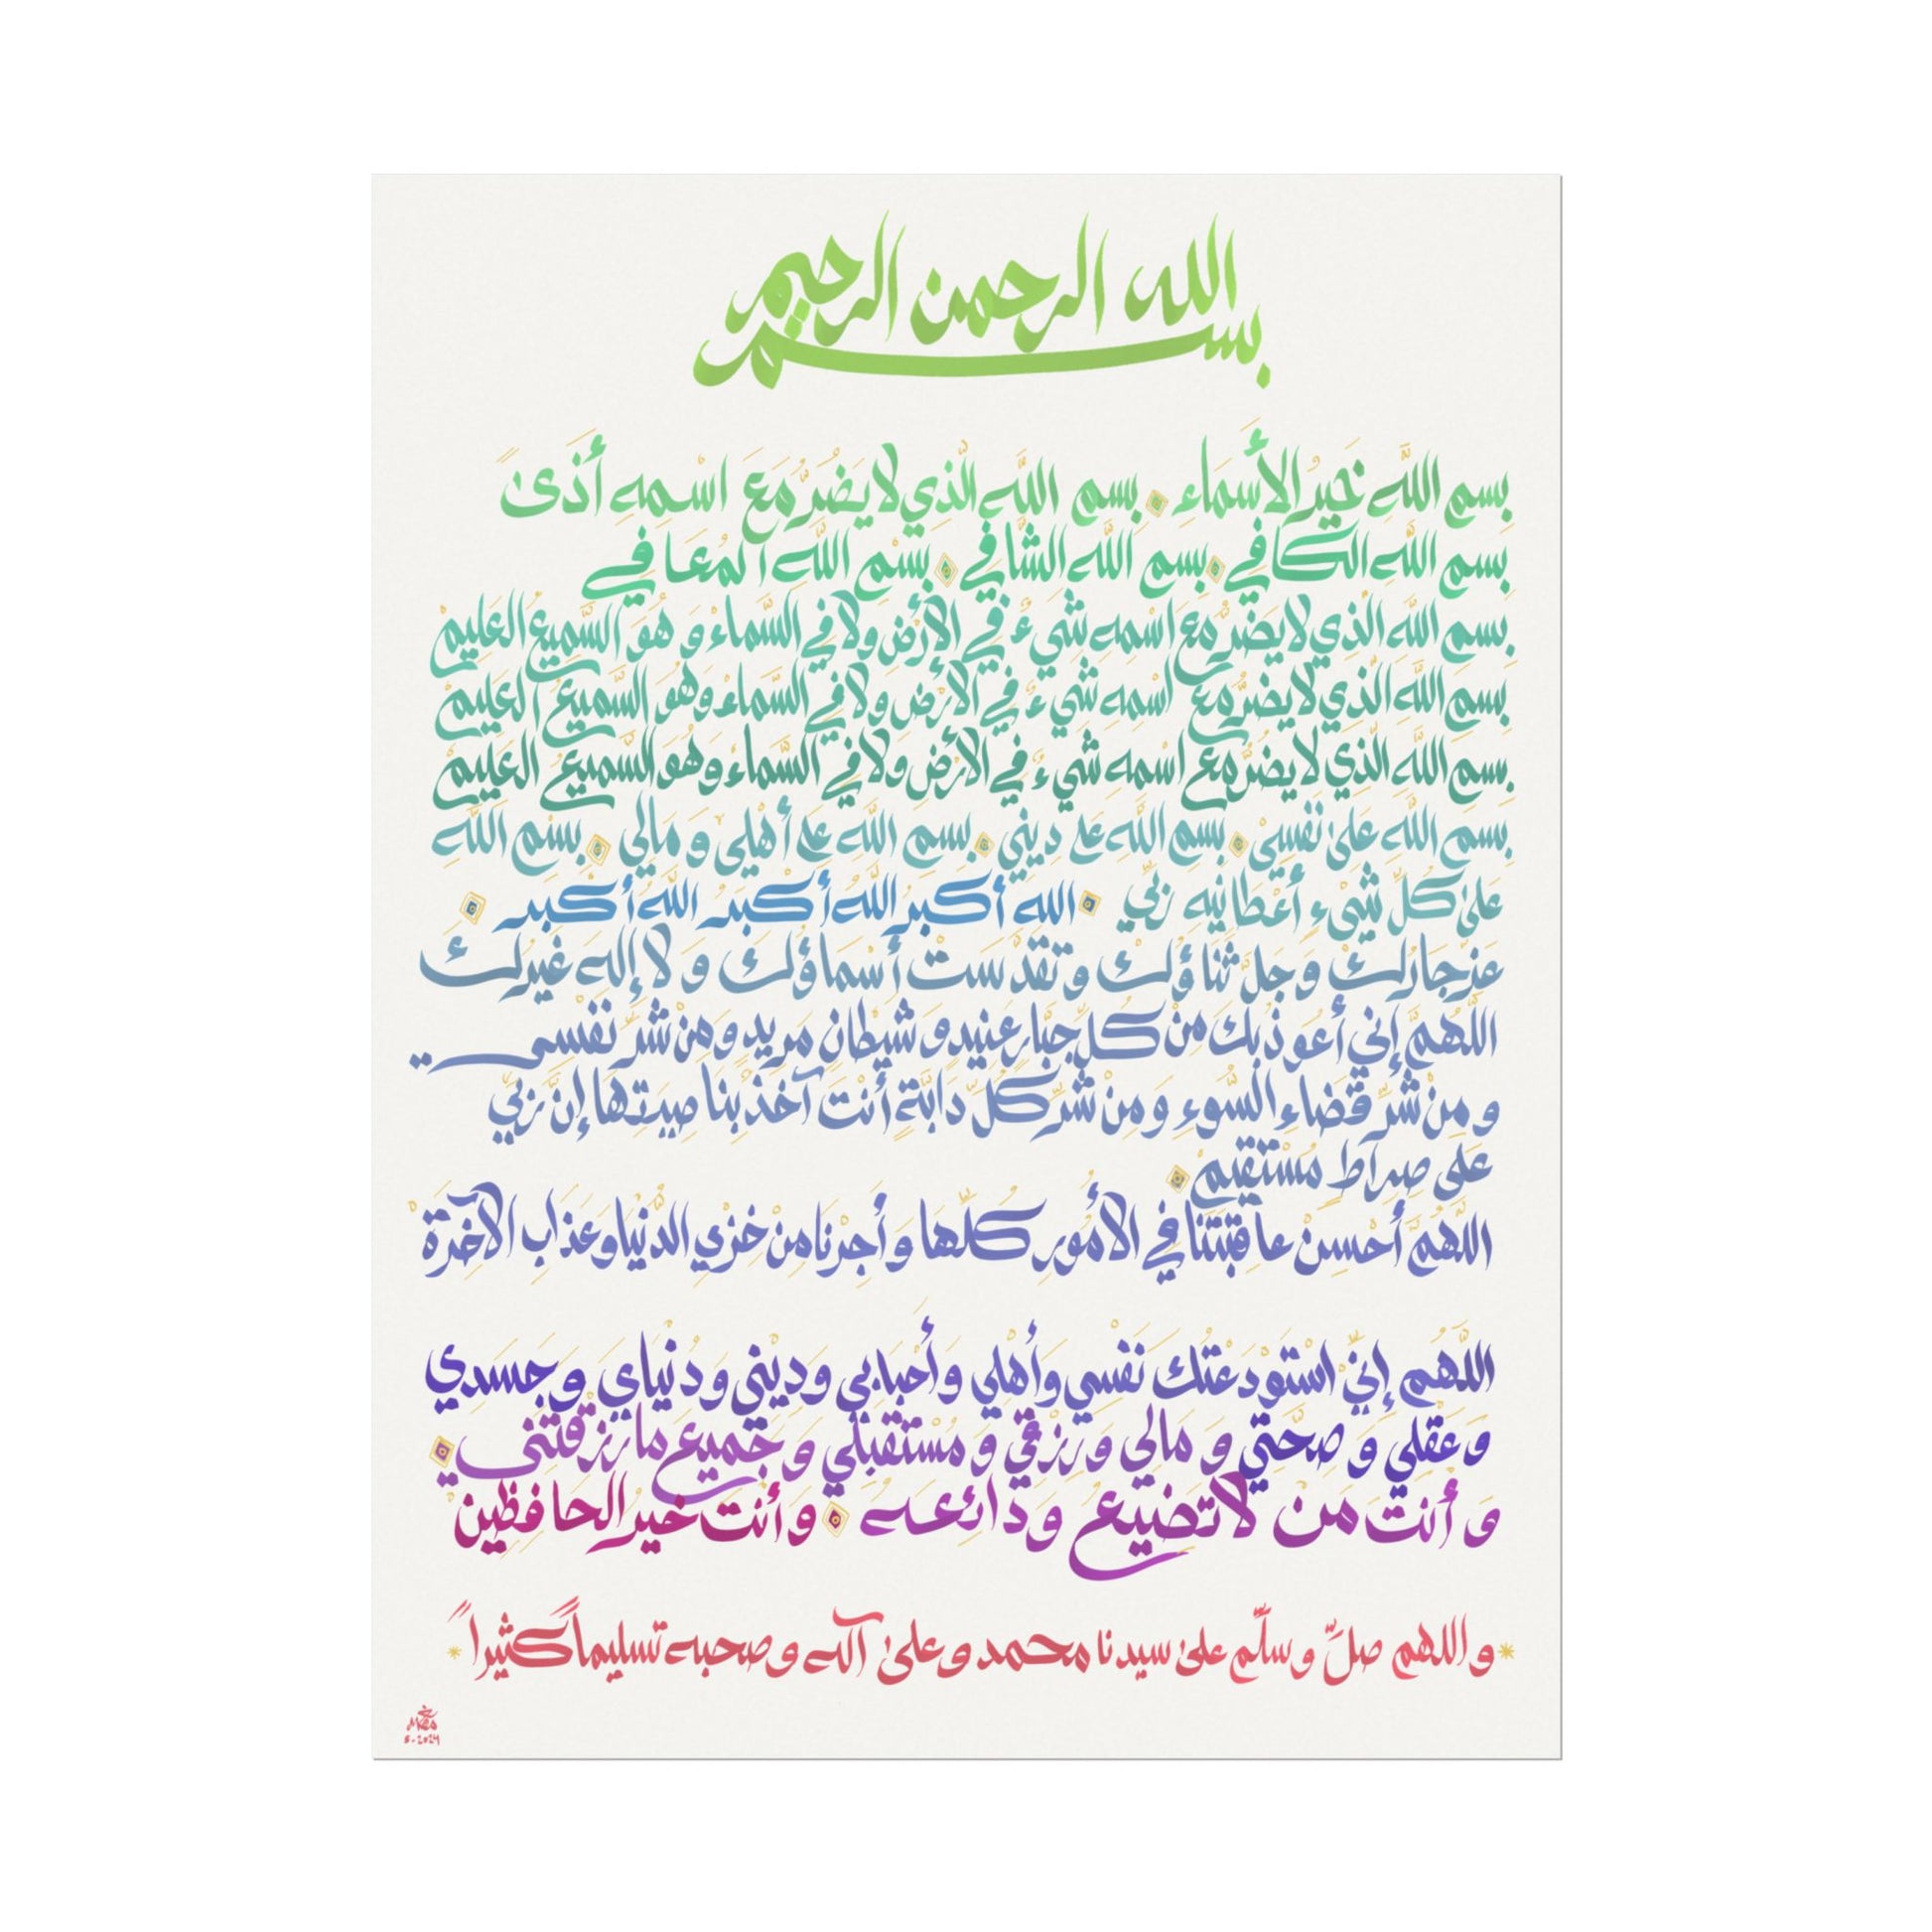 بسم الله الرحمن الرحيم
بسم اللَّه خَيرُ الأَسْماء بسم اللَّه الَّذي لا يَضُرُّ مَعَ اسْمِهِ أَذىً
بسم اللَّه الكافي بسم اللَّه الشَّافي بسْم اللَّه المُعَافي
بسم اللَّه الَّذي لا يضرُّ مع اسْمه شيْءٌ في الأرْض ولا في السَّماء و هُو السَّميعُ العَليمُ
بسم اللَّه الَّذي لا يضرُّ مع اسمه شيْءٌ في الأرْض ولا في السَّماء وهُو السَّميعُ العَليمُ
بسم اللَّه الَّذي لا يضُرُّ مع اسْمه شيْءٌ في الأرْض ولا في السَّماء وهُو السَّميعُ العَليمُ
بسم اللَّه عَلىٰ نَفْسي بسم اللَّه على ديني بسم اللَّه على أَهْلي و مَالي بسْم اللَّه
عَلىٰ كُلِّ شَيْء أَعْطانيه رَبِّي اللَّه أكبر اللَّهُ أكبر اللَّهُ أكبر
عزَّ جارُك وَ جَلَّ ثَنَاؤُك و تقدَّست أسماؤُك و لا إله غيرك
اللَّهُمَّ إنِّي أعوذ بك منْ كُلِّ جبَّار عنيد و شيْطان مريد و منْ شرِّ نفْسي
و من شرِّ قَضاء السوء و من شرِّ كُلِّ دابَّة أنْت آخذٌ بنا صيتها إنَّ ربِّي
عَلى صراط مُسْتقيم
اللَّهُمَّ أحْسنْ عاقبَتَنا في الأُمُور كُلِّها و أجرْنا منْ خزْي الدُّنْيا و عذاب الآخرة
اللَّهُم إنِّي استوْدعْتُك نفْسي وأهْلي و أحبابي و ديْني و دُنْياي و جسدي
و عقْلي و صحَّتي و مالي و رزْقي و مسْتقْبلي و جميع ما رزقْتني
و أنت من لا تضيع ودائعه و أنت خير الحافظين
و اللهم صلِّ و سلّم علىٰ سيدنا محمد و علىٰ آله و صحبه تسليماً كثيراً
5.2024